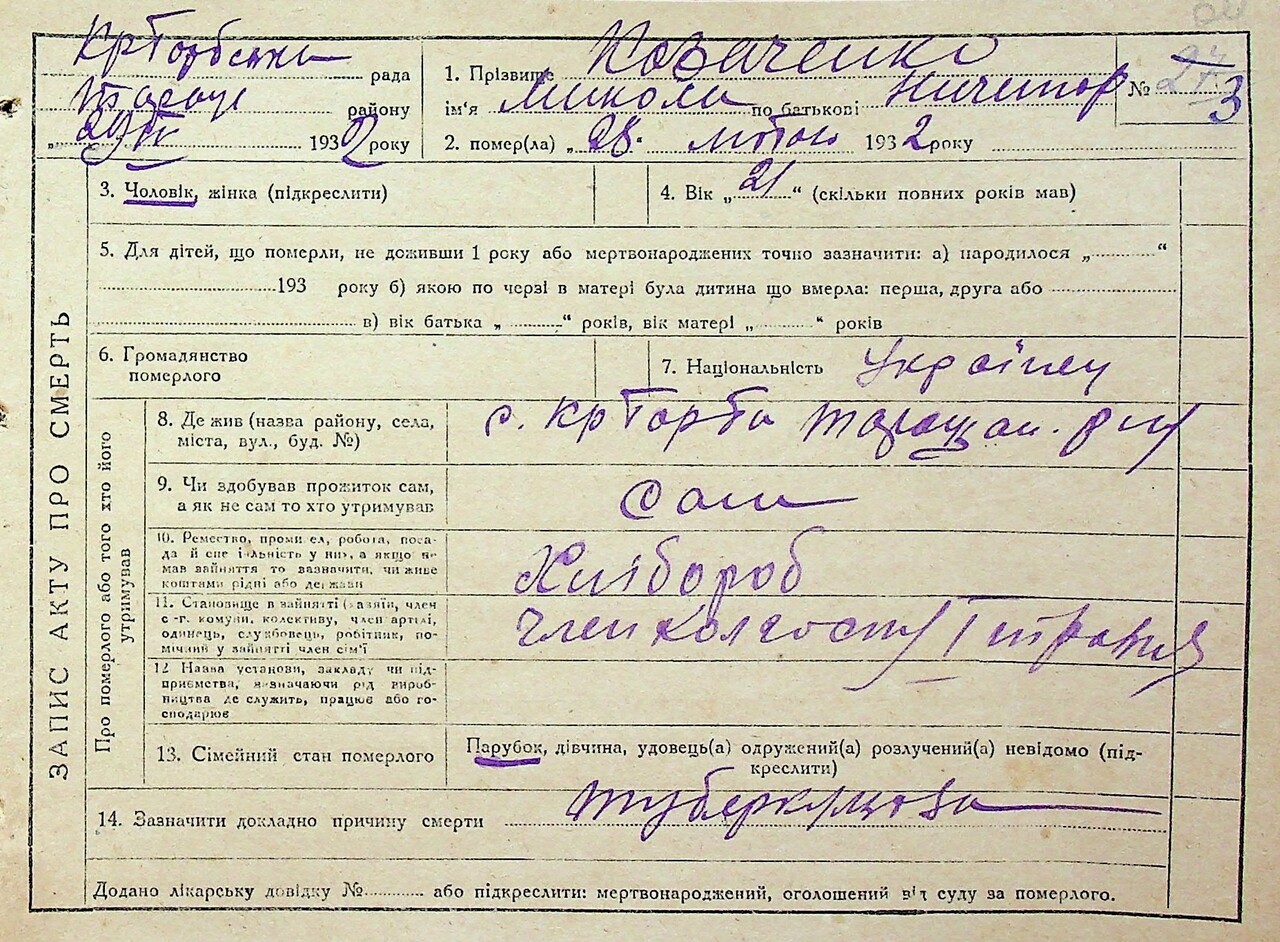 КрТорбська рада
Таращ району
„29/II 1932 року
1. Прізвище Козаченко
ім'я Микола по батькові Ничипор
№ 3
2. помер(ла) „28" лютого 1932 року
3. Чоловік, жінка (підкреслити)
4. Вік „21" (скільки повних років мав)
5. Для дітей, що померли, не доживши 1 року або мертвонароджених точно зазначити: а) народилося „ “
193 року б) якою по черзі в матері була дитина що вмерла: перша, друга або
в) вік батька „ “ років, вік матері „ “ років
6. Громадянство
померлого
7. Національність Українец
ЗАПИС АКТУ ПРО СМЕРТЬ
Про померлого або того хто його
утримував
8. Де жив (назва району, села,
міста, вул., буд. №)
с. КрТорба Таращан. р-ну
9. Чи здобував прожиток сам,
а як не сам то хто утримував
Сам
10. Ремество, промисел, робота, поса-
да й спеціяльність у них, а якщо не
мав зайняття то зазначити, чи живе
коштами рідні або держави
Хлібороб
11. Становище в зайнятті (хазяїн, член
с-г. комуни, колективу, член артілі,
одинець, службовець, робітник, по-
мічний у зайнятті член сім'ї
член колгоспу
12 Назва установи, закладу чи під-
приємства, визначаючи рід вироб-
ництва де служить, працює або го-
сподарює
13. Сімейний стан померлого
Парубок, дівчина, удовець(а) одружений(а) розлучений(а) невідомо (під-
креслити)
14. Зазначити докладно причину смерти туберкульоза
Додано лікарську довідку № або підкреслити: мертвонароджений, оголошений від суду за померлого.